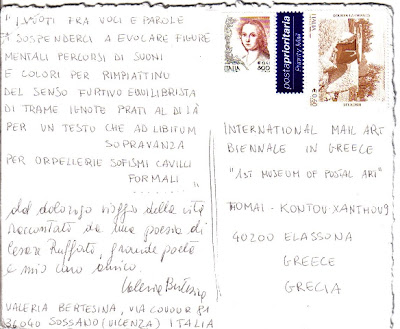 "I VUOTI FRA VOCI E PAROLE
A SOSPENDERCI A EVOLARE FIGURE
MENTALI PERCORSI DI SUONI
E COLORI PER RIMPIATTINO
DEL SENSO FURTIVO EQUILIBRISTA
DI TRAME IGNOTE PRATI AL DI LÀ
PER UN TESTO CHE AD LIBITUM
SOPRAVANZA
PER ORPELLERIE SOFISMI CAVILLI
FORMALI
.......... "
dal doloroso viaggio della vita
raccontato da una poesia di
Cesare Ruffato, grande poeta
e mio caro amico.
Valeria Bertesina
VALERIA BERTESINA, VIA CAVOUR 81
36040 SOSSANO (VICENZA) ITALIA
ITALIA
postaprioritaria
Priority Mail
ITALIA
INTERNATIONAL MAIL ART
BIENNALE IN GREECE
"1ST MUSEUM OF POSTAL ART"
THOMAI - KONTOU-XANTHOU9
40200 ELASSONA
GREECE
GRECIA